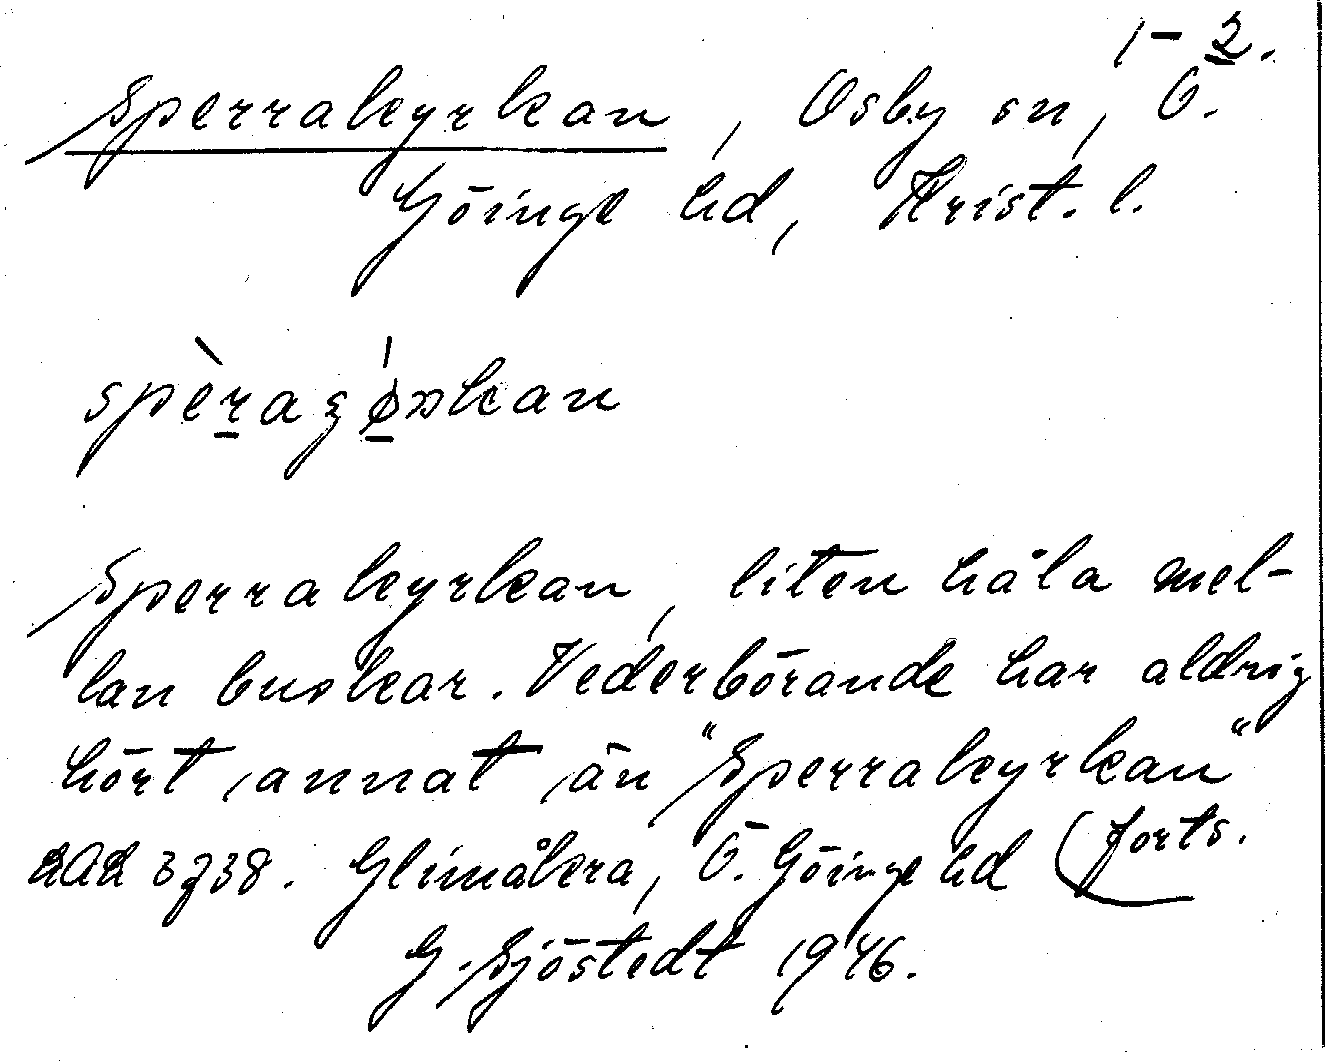 1-2.
Sperrakyrkan, Osby sn, Ö.
Göinge hd, Krist. l.
Sperrakyrkan, liten håla mel-
lan buskar. Vederbörande har aldrig
hört annat än "Sperrakyrkan"
3738. Glimåkra, Ö. Göinge hd (forts.
G. Sjöstedt 1946.